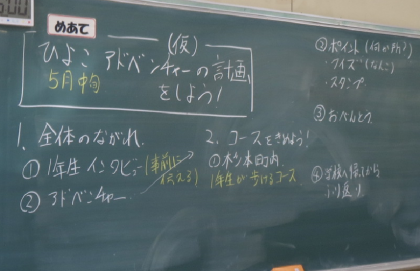 めあて
(仮)
ひよこ アドベンチャーの計画
5月中旬
をしよう!
1. 全体のながれ
① 1年生 インタビュー(事前に
伝える)
② アドベンチャー
2. コースをきめよう!
① 杉本町内
1年生が歩けるコース
② ポイント(何か所?)
・クイズ(なんこ)
・スタンプ
③ おべんとう
④ 学校へ帰ってから
ふり返り